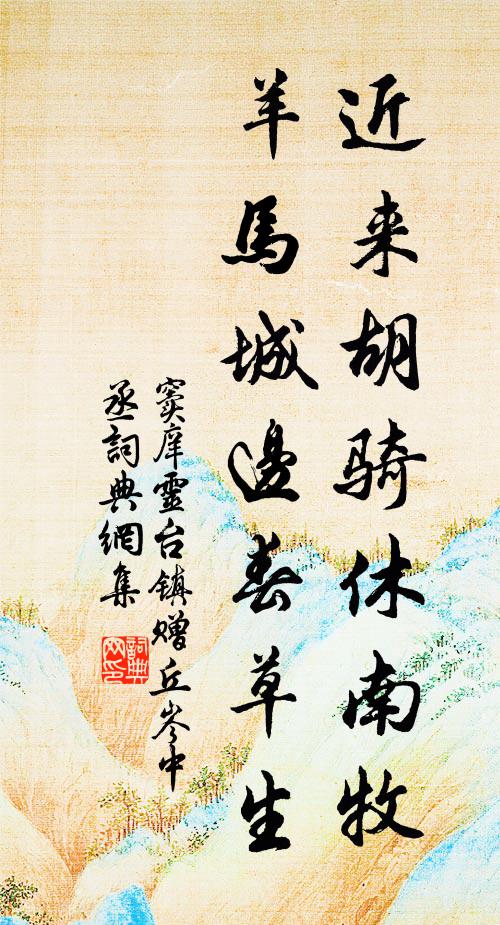 近来胡骑休南牧
羊馬城邊春草生
窦庠靈台镇赠丘岑中
丞詞典網集
詞典网印